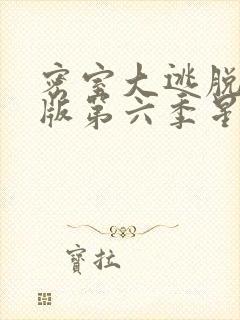 密室大逃脱
版第六季星
寶拉